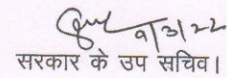 9/3/22
सरकार के उप सचिव।